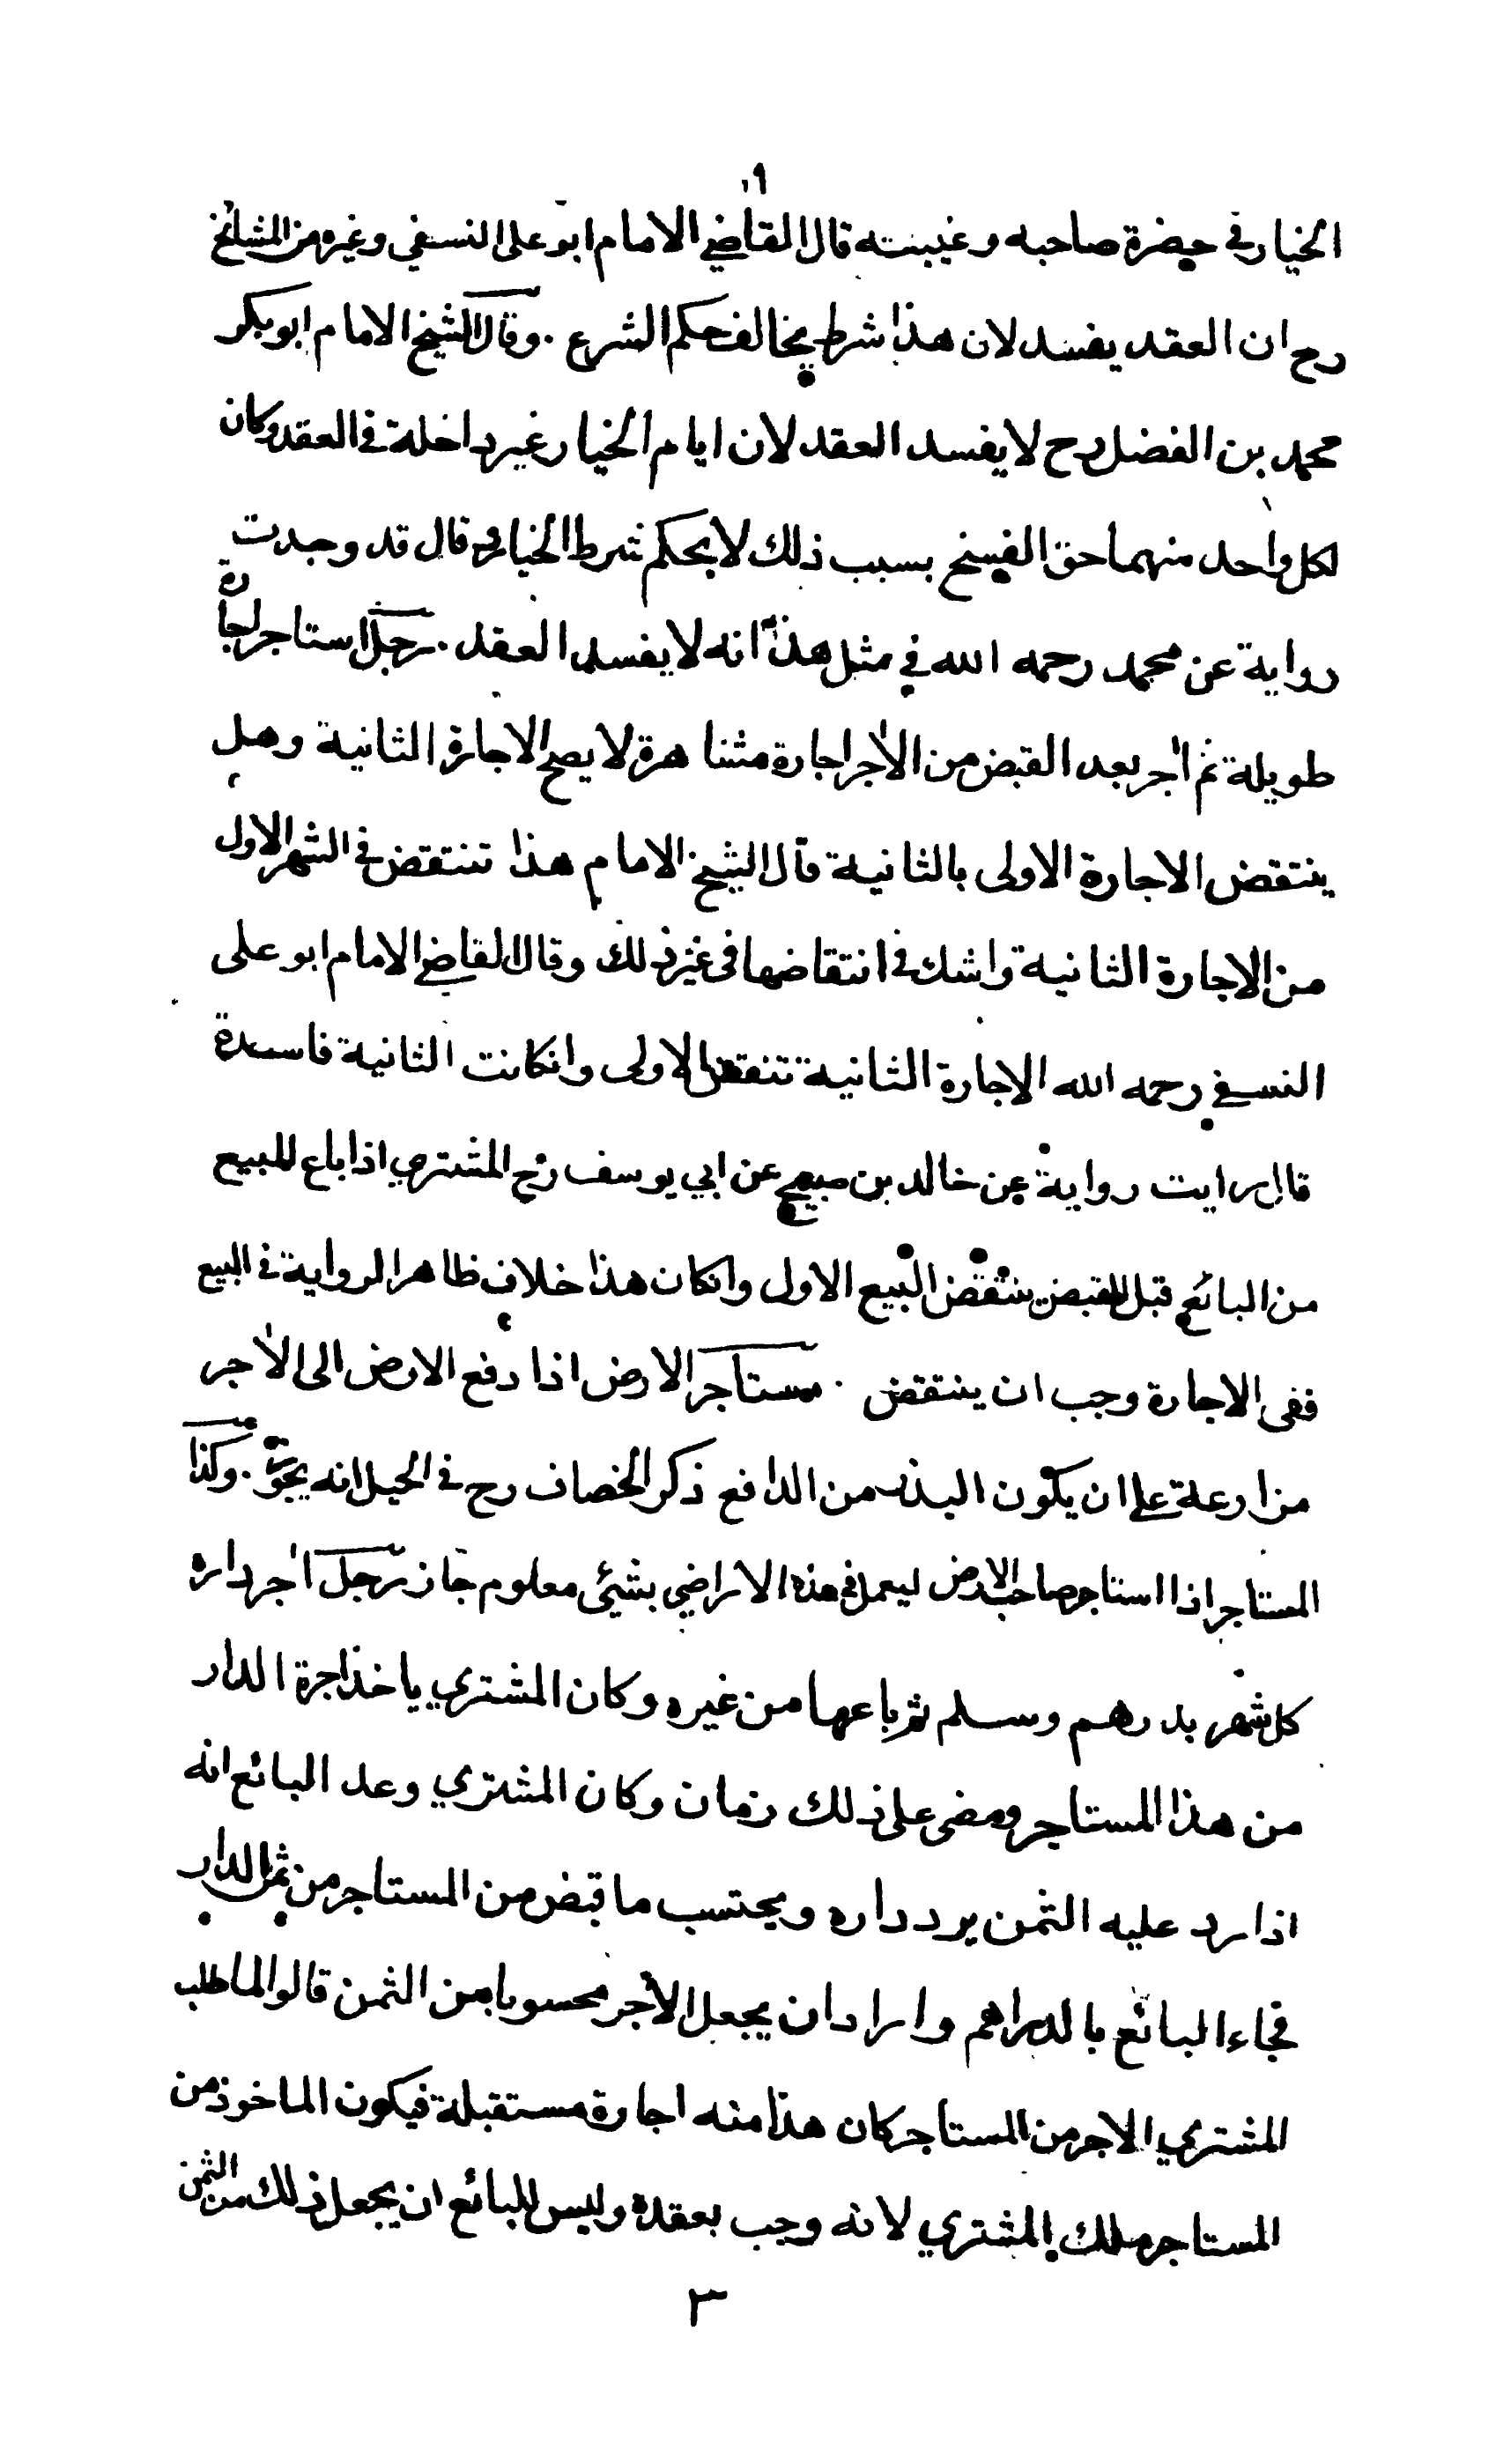 ٩
الخيار في حضرة صاحبه وغيبته قال القاضي الامام ابو علي النسفي وغيره من المشائخ
رح ان العقد يفسد لان هذا شرط يخالف حكم الشرع . وقال الشيخ الامام ابو بكر
محمد بن الفضل رح لا يفسد العقد لان ايام الخيار غير داخلة في العقد وكان
لكل واحد منهما حق الفسخ بسبب ذلك لا بحكم شرط الخيار قال قد وجدت
رواية عن محمد رحمه الله في مثل هذا انه لا يفسد العقد . رجل استاجر اجارة
طويلة ثم اجر بعد القبض من الاجر اجارة مشاهرة لا يصح الاجارة الثانية وهل
ينتقض الاجارة الاولى بالثانية قال الشيخ الامام هذا تنتقض في الشهر الاول
من الاجارة الثانية واشك في انتقاضها في غير ذلك وقال القاضي الامام ابو على
النسفي رحمه الله الاجارة الثانية تنتقض الاولى وانكانت الثانية فاسدة
قال رايت رواية عن خالد بن صبيح عن ابي يوسف رح المشتري اذا باع المبيع
من البائع قبل القبض ينتقض البيع الاول وانكان هذا خلاف ظاهر الرواية في البيع
ففى الاجارة وجب ان ينتقض . مستاجر الارض اذا دفع الارض الى الاجر
مزارعة على ان يكون البذر من الدافع ذكر الخصاف رح في الحيل انه يجوز . وكذا
المستاجر اذا استاجر صاحب الارض ليعمل في هذه الاراضي بشيئ معلوم جاز رجل اجر داره
كل شهر بدرهم وسلم ثم باعها من غيره وكان المشتري ياخذ اجرة الدار
من هذا المستاجر ومضى على ذلك زمان وكان المشتري وعد البائع انه
اذا رد عليه الثمن يرد داره ويحتسب ما قبض من المستاجر من ثمن الدار
فجاء البائع بالدراهم واراد ان يجعل الاجر محسوبا من الثمن قالوا لما طلب
المشتري الاجر من المستاجر كان هذا منه اجارة مستقبلة فيكون الماخوذ من
المستاجر ملك المشتري لانه وجب بعقده وليس للبائع ان يجعل ذلك من الثمن
٣